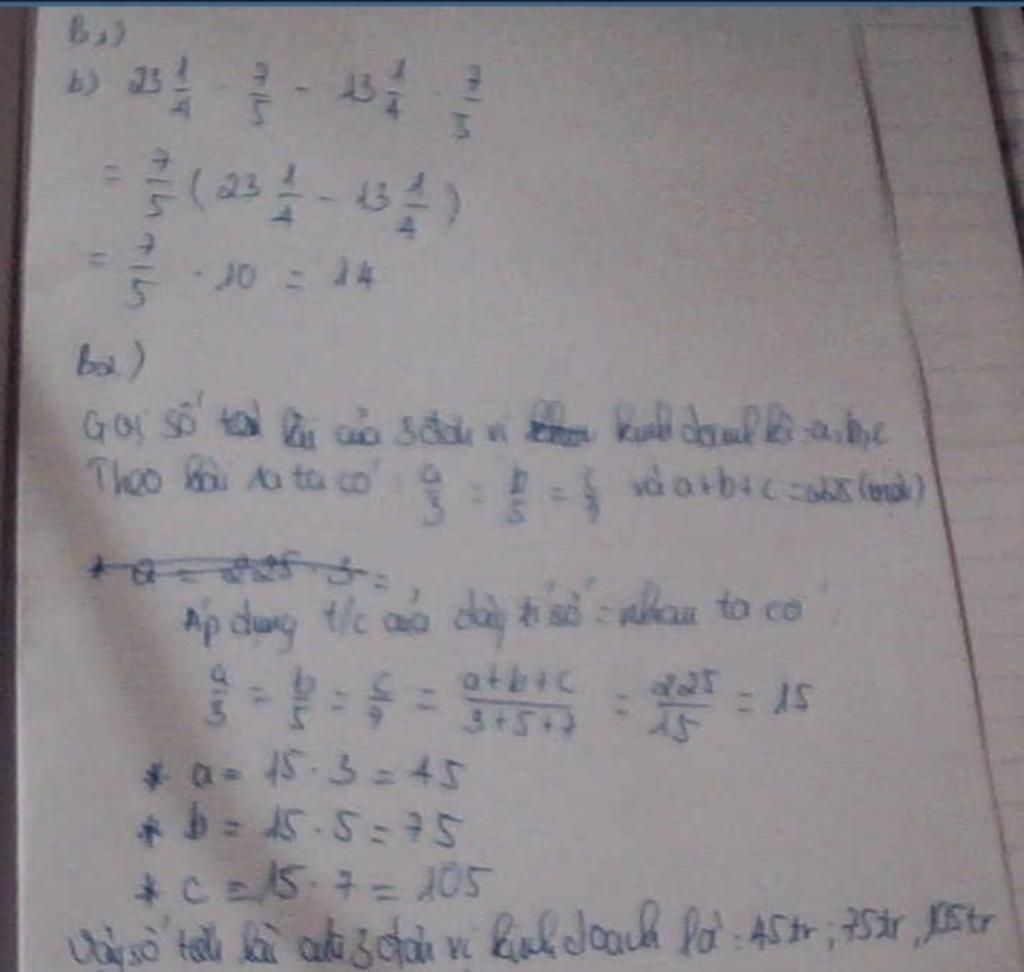 B1)
b) 23 1/4 · 7/5 - 13 1/4 · 7/5
= 7/5 ( 23 1/4 - 13 1/4 )
= 7/5 · 10 = 14
B2)
Gọi số lãi của 3 đơn vị kinh doanh là a, b, c
Theo bài ra ta có : a/3 = b/5 = c/7 và a+b+c = 225 (triệu)
* a = 225 · 3 =
Áp dụng t/c của dãy tỉ số = nhau ta có
a/3 = b/5 = c/7 = a+b+c/3+5+7 = 225/15 = 15
* a = 15 · 3 = 45
* b = 15 · 5 = 75
* c = 15 · 7 = 105
Vậy số tiền lãi của 3 đơn vị kinh doanh là : 45tr ; 75tr , 105tr